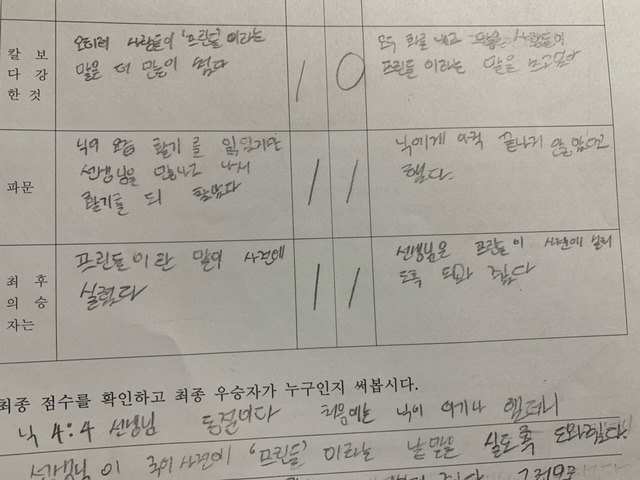 칼 보
다 강
한 것
오히려 사람들이 '프린들'이라는
말을 더 많이 썼다
1 0
모두 화를 내고 많은 사람들이
프린들 이라는 말을 쓰고있다
파문
닉이 요즘 활기를 잃었지만
선생님을 만나고 나서
활기를 되 찾았다
1 1
닉에게 아직 끝나지 않았다고
했다.
최 후
의 승
자는
프린들 이란 말이 사전에
실렸다
1 1
선생님은 프린들이 사전에 실리
도록 도와 줬다
최종 점수를 확인하고 최종 우승자가 누구인지 써봅시다.
닉 4:4 선생님 동점이다 처음에는 닉이 이기나 했더니
선생님이 국어사전에 '프린들' 이라는 낱말을 실도록 도와줬다.
그러므로